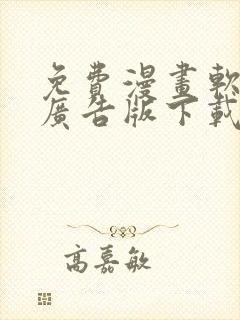 免費漫畫軟
廣告版下載
高嘉敏